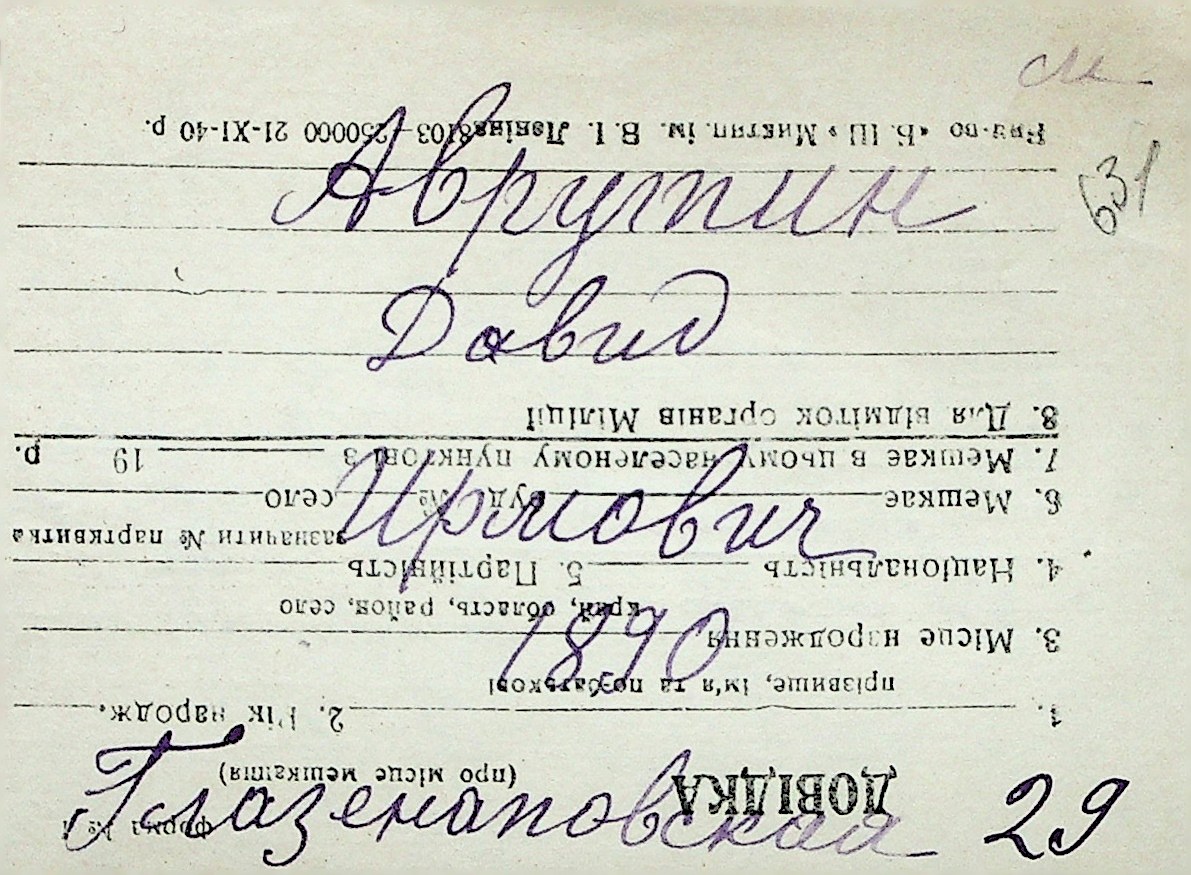 см
631
Аврутин
Давид
Ирмович
1890
Глазенаповская 29
Форма № 1
ДОВІДКА
(про місце мешкання)
1. 2. Рік народж.
прізвище, ім'я та по батькові
3. Місце народження
край, область, район, село
4. Національність 5. Партійність
зазначити № партквитка
6. Мешкає буд. № село
7. Мешкає в цьому населеному пункті з 19 р.
8. Для відміток органів Міліції
«Б. Ш.» Миктип. ім. В. І. Леніна 8103—250000 21-XI-40 р.